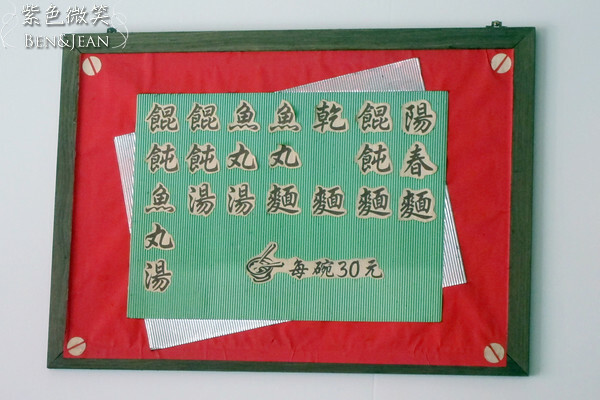 紫色微笑
BEN&JEAN
陽春麵
餛飩麵
乾麵
魚丸麵
魚丸湯
餛飩湯
餛飩魚丸湯
每碗30元